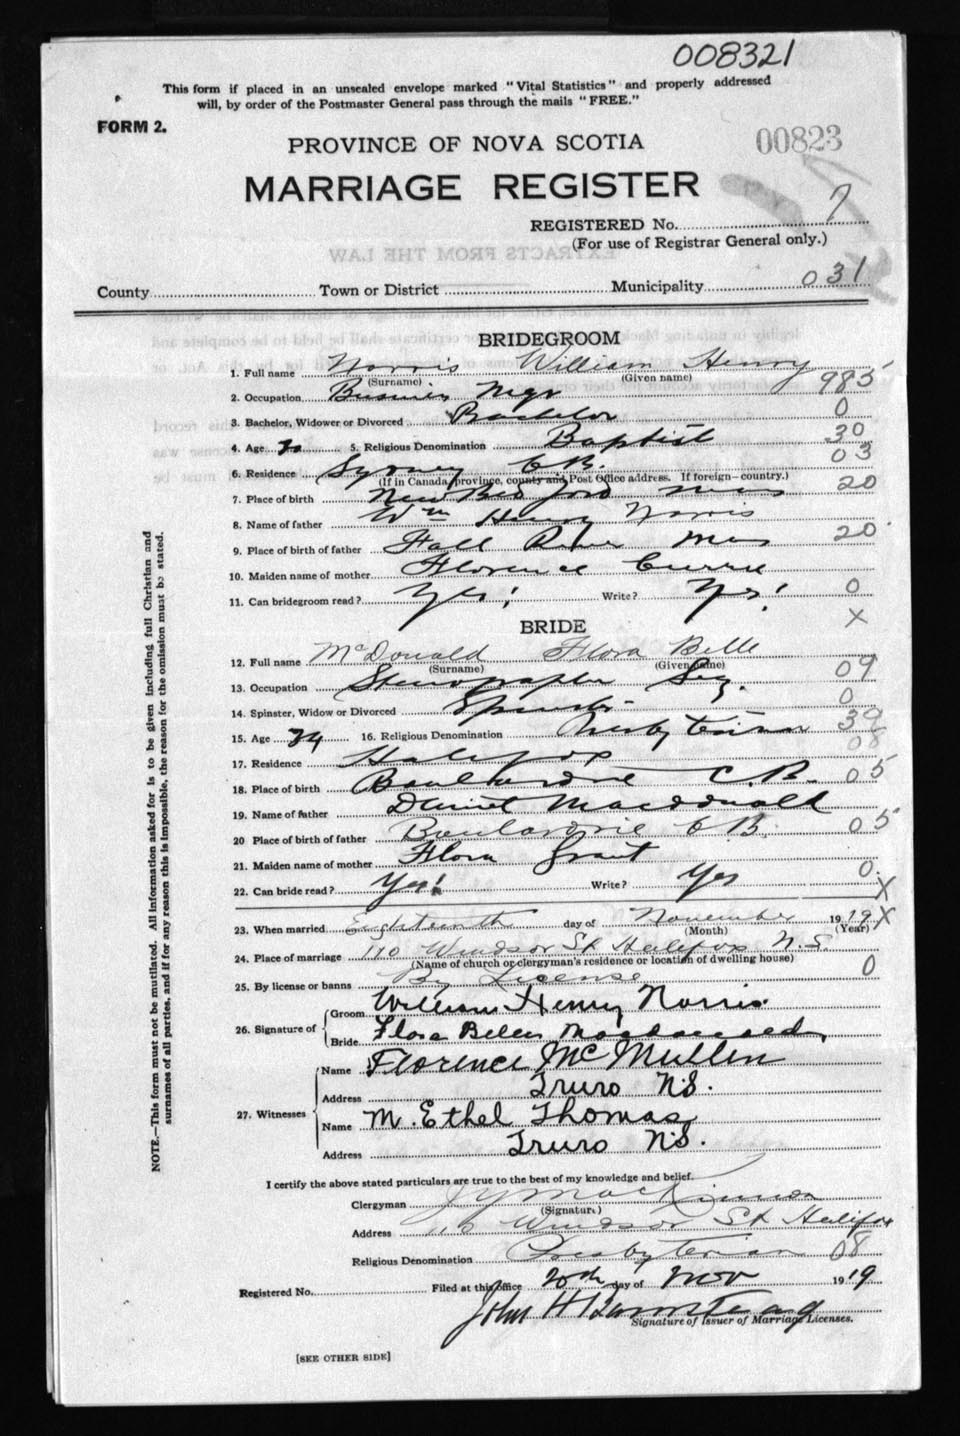 008321
This form if placed in an unsealed envelope marked "Vital Statistics" and properly addressed
will, by order of the Postmaster General pass through the mails "FREE."
FORM 2.
PROVINCE OF NOVA SCOTIA
00823
MARRIAGE REGISTER
REGISTERED No. 7
(For use of Registrar General only.)
EXTRACTS FROM THE LAW
County Town or District Municipality 031
BRIDEGROOM
1. Full name Norris William Henry
(Surname) (Given name)
985
2. Occupation Business Mgr
3. Bachelor, Widower or Divorced Bachelor 0
4. Age 5. Religious Denomination Baptist 30
6. Residence Sydney C.B. 03
(If in Canada, province, county and Post Office address. If foreign—country.)
7. Place of birth New Bedford Mass 20
8. Name of father Wm Henry Norris
9. Place of birth of father Fall River Mass 20
10. Maiden name of mother Florence
11. Can bridegroom read? Yes! Write? Yes! 0
X
BRIDE
12. Full name McDonald Flora Belle
(Surname) (Given name)
13. Occupation Stenographer 09
14. Spinster, Widow or Divorced Spinster 0
15. Age 34 16. Religious Denomination Presbyterian 39
17. Residence Halifax 08
18. Place of birth Boulardrie C.B. 05
19. Name of father Daniel Macdonald
20 Place of birth of father Boulardrie C B. 05
21. Maiden name of mother Flora Grant
22. Can bride read? Yes! Write? Yes 0
X
23. When married Eighteenth day of November 1919 X
(Month) (Year)
24. Place of marriage 110 Windsor St Halifax N.S.
(Name of church or clergyman's residence or location of dwelling house)
25. By license or banns By License 0
26. Signature of Groom William Henry Norris.
Bride Flora Belle Macdonald
27. Witnesses
Name Florence McMullen
Address Truro N.S.
Name M. Ethel Thomas
Address Truro N.S.
I certify the above stated particulars are true to the best of my knowledge and belief.
Clergyman MacKinnon
(Signature)
Address 110 Windsor St Halifax
Religious Denomination Presbyterian 08
Registered No. Filed at this office 20th day of Nov 1919
John H Barnstead
Signature of Issuer of Marriage Licenses.
[SEE OTHER SIDE]
NOTE.—This form must not be mutilated. All information asked for is to be given including full Christian and
surnames of all parties, and if for any reason this is impossible, the reason for the omission must be stated.